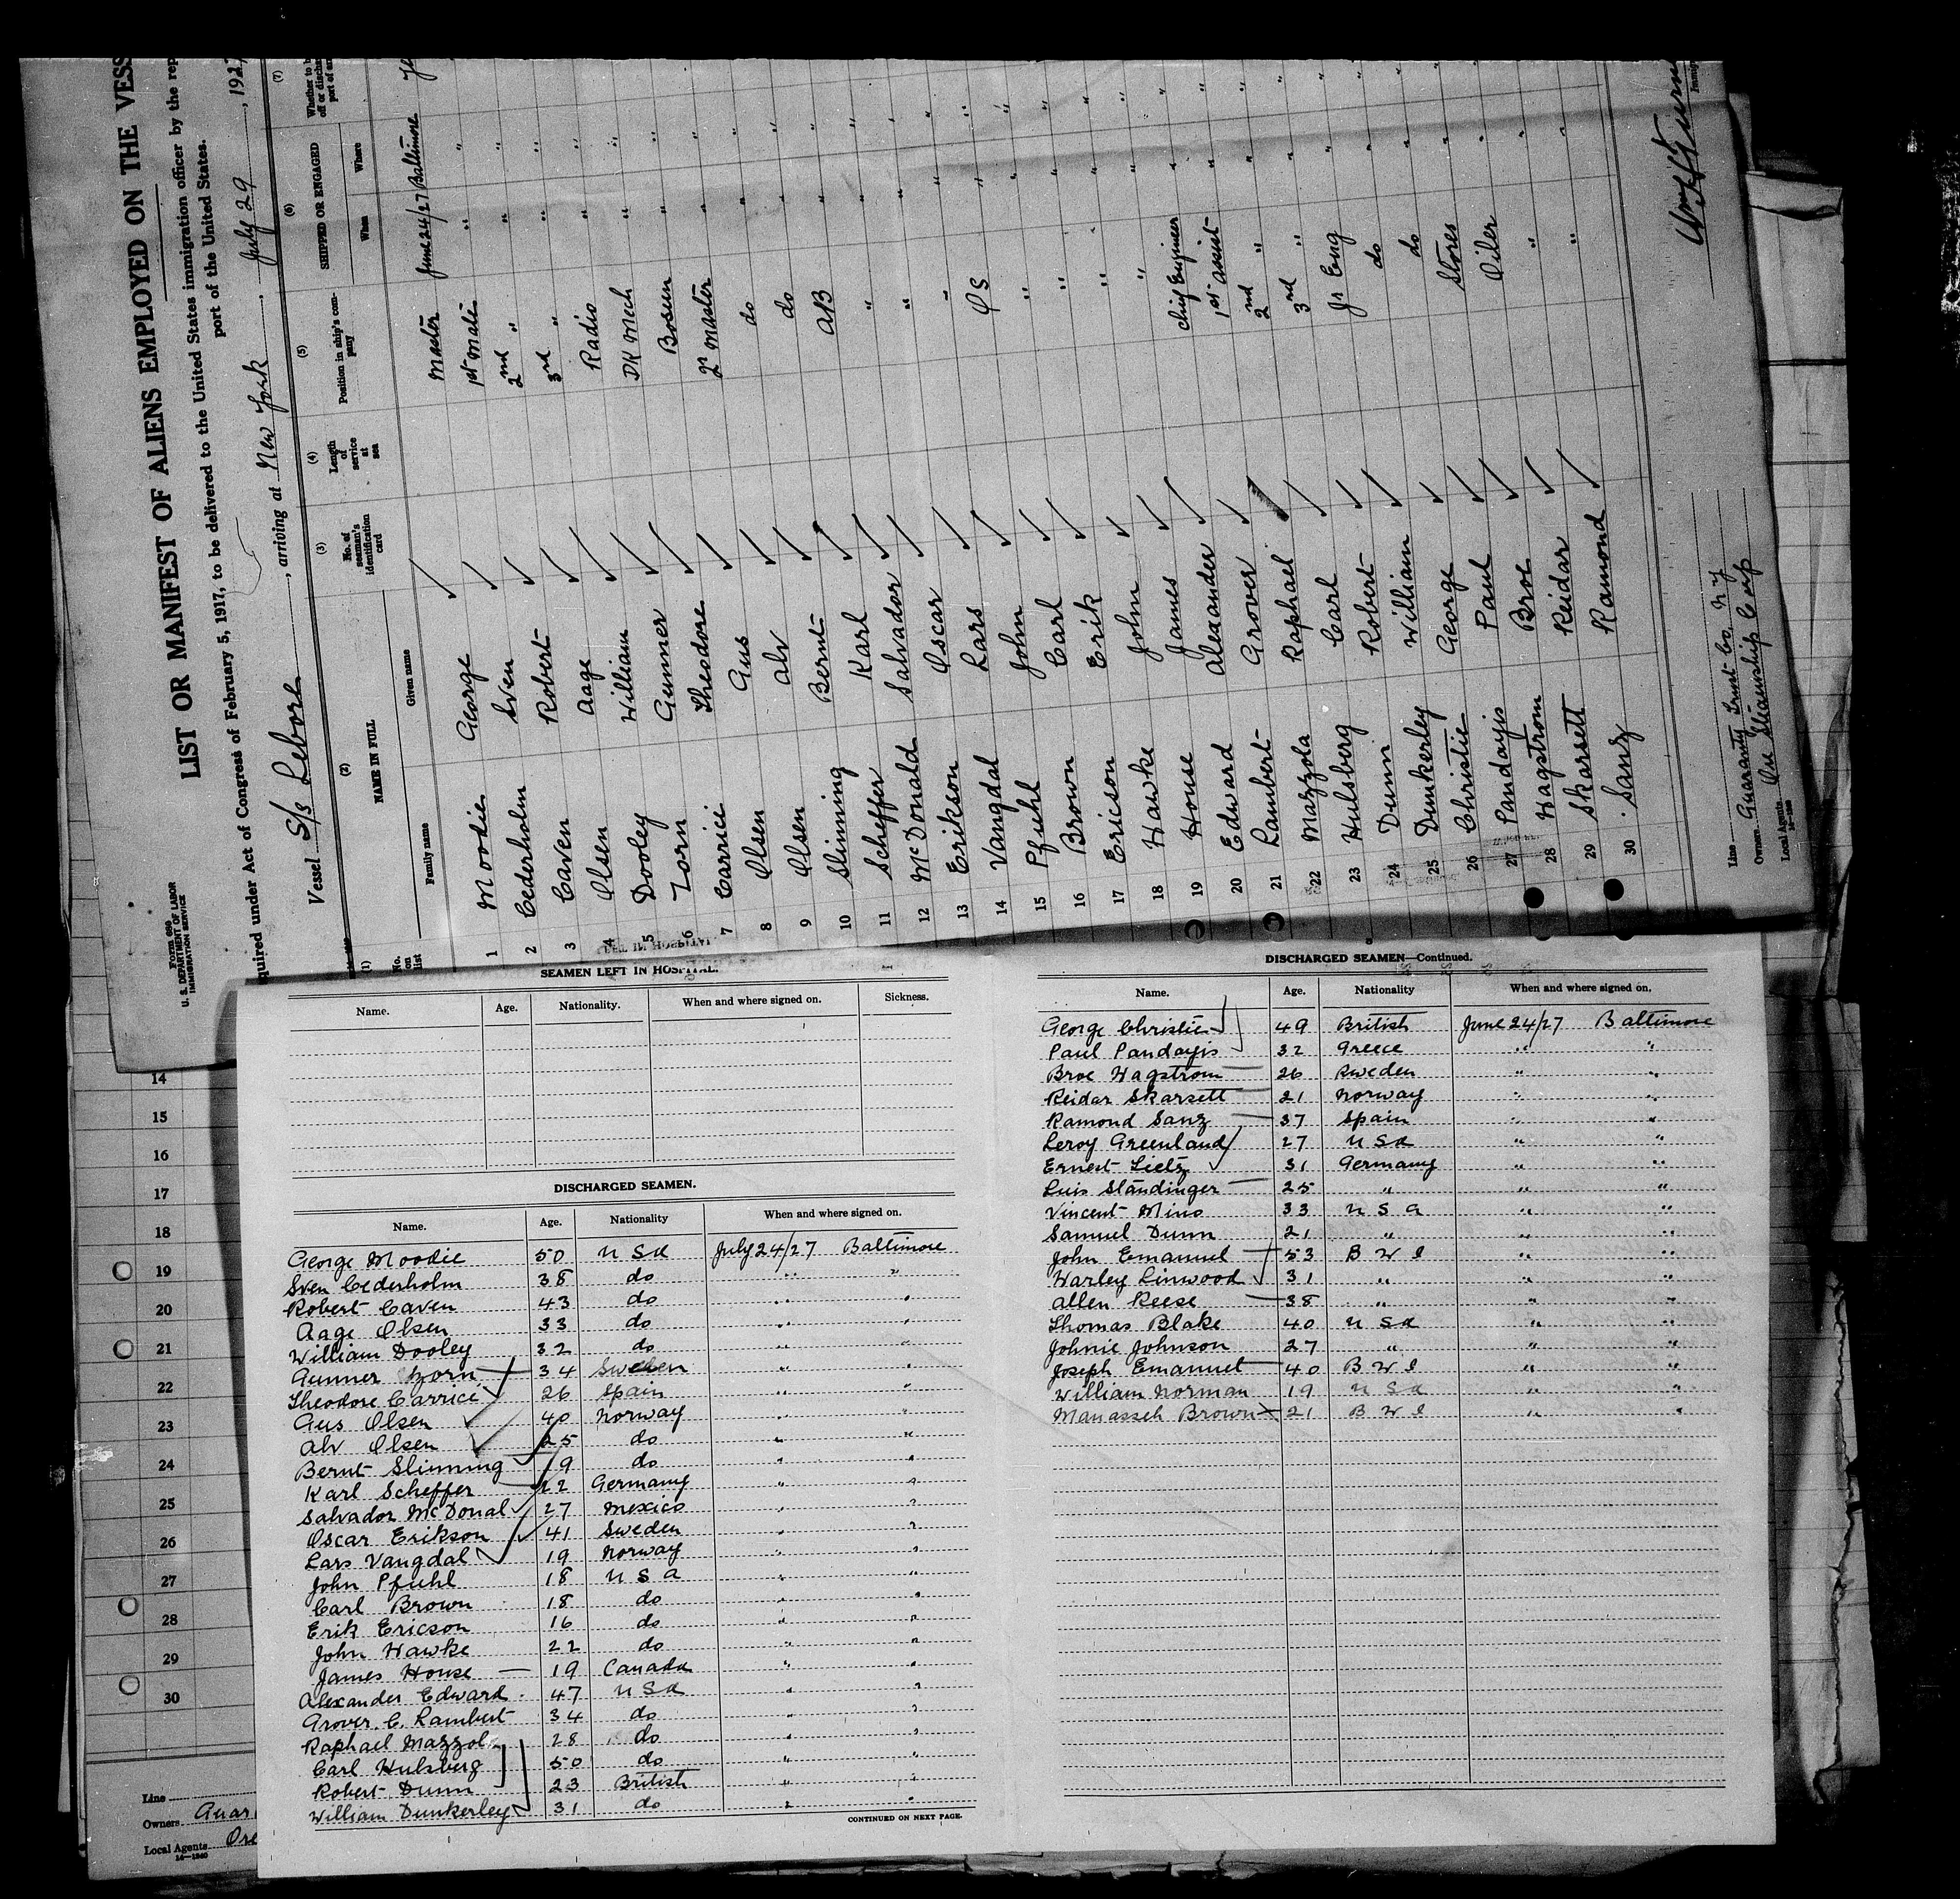 Form 689
U. S. DEPARTMENT OF LABOR
IMMIGRATION SERVICE
LIST OR MANIFEST OF ALIENS EMPLOYED ON THE VESS
quired under Act of Congress of February 5, 1917, to be delivered to the United States immigration officer by the rep
port of the United States.
Vessel S/s Lebore, arriving at New York, July 29, 1927
(1) (2) (3) (4) (5) (6) (7)
No. on list NAME IN FULL No. of seaman's identification card Length of service at sea Position in ship's company SHIPPED OR ENGAGED Whether to b off or dischar port of ar
Family name Given name When Where
1 Moodie George Master June 24/27 Baltimore
2 Cederholm Sven 1st Mate " "
3 Caven Robert 2nd " " "
4 Olsen Aage 3rd " " "
5 Dooley William Radio " "
6 Zorn Gunner DK Mech " "
7 Carrice Theodore Bosun " "
8 Olsen Gus Qr Master " "
9 Olsen Alv do " "
10 Slinning Bernt do " "
11 Scheffer Karl AB " "
12 McDonald Salvador " " "
13 Erikson Oscar " " "
14 Vangdal Lars " " "
15 Pfuhl John OS " "
16 Brown Carl " " "
17 Ericson Erik " " "
18 Hawke John " " "
19 House James " " "
20 Edward Aleander Chief Engineer " "
21 Lambert Grover 1st assist " "
22 Mazzola Raphael 2nd " " "
23 Hulsberg Carl 3rd " " "
24 Dunn Robert Jr Eng " "
25 Dunkerley William do " "
26 Christie George do " "
27 Pandayis Paul Stores " "
28 Hagstrom Broe Oiler " "
29 Skarsett Reidar " " "
30 Sanz Ramond " " "
Line
Owners Guaranty Trust Co, N Y
Local Agents Ore Steamship Corp
14
15
16
17
18
19
20
21
22
23
24
25
26
27
28
29
30
Line
Owners Guar
Local Agents Ore
SEAMEN LEFT IN HOSPITAL.
Name. Age. Nationality. When and where signed on. Sickness.
DISCHARGED SEAMEN.
Name. Age. Nationality When and where signed on.
George Moodie 50 U S A July 24/27 Baltimore
Sven Cederholm 38 do " "
Robert Caven 43 do " "
Aage Olsen 33 do " "
William Dooley 32 do " "
Gunner Zorn 34 Sweden " "
Theodore Carrice 26 Spain " "
Gus Olsen 40 Norway " "
Alv Olsen 25 do " "
Bernt Slinning 19 do " "
Karl Scheffer 22 Germany " "
Salvador McDonal 27 Mexico " "
Oscar Erikson 41 Sweden " "
Lars Vangdal 19 Norway " "
John Pfuhl 18 U S A " "
Carl Brown 18 do " "
Erik Ericson 16 do " "
John Hawke 22 do " "
James House 19 Canada " "
Alexander Edward 47 U S A " "
Grover C. Lambert 34 do " "
Raphael Mazzola 28 do " "
Carl Hulsberg 50 do " "
Robert Dunn 23 British " "
William Dunkerley 31 do " "
CONTINUED ON NEXT PAGE.
DISCHARGED SEAMEN—Continued.
Name. Age. Nationality When and where signed on.
George Christie 49 British June 24/27 Baltimore
Paul Pandayis 32 Greece " "
Broe Hagstrom 26 Sweden " "
Reidar Skarsett 21 Norway " "
Ramond Sanz 37 Spain " "
Leroy Greenland 27 U S A " "
Ernest Lietz 31 Germany " "
Luis Standinger 25 " " "
Vincent Mino 33 U S A " "
Samuel Dunn 21 " " "
John Emanuel 53 B W I " "
Harley Linwood 31 " " "
Allen Reese 38 " " "
Thomas Blake 40 U S A " "
Johnie Johnson 27 " " "
Joseph Emanuel 40 B W I " "
William Norman 19 U S A " "
Manasseh Brown 21 B W I " "